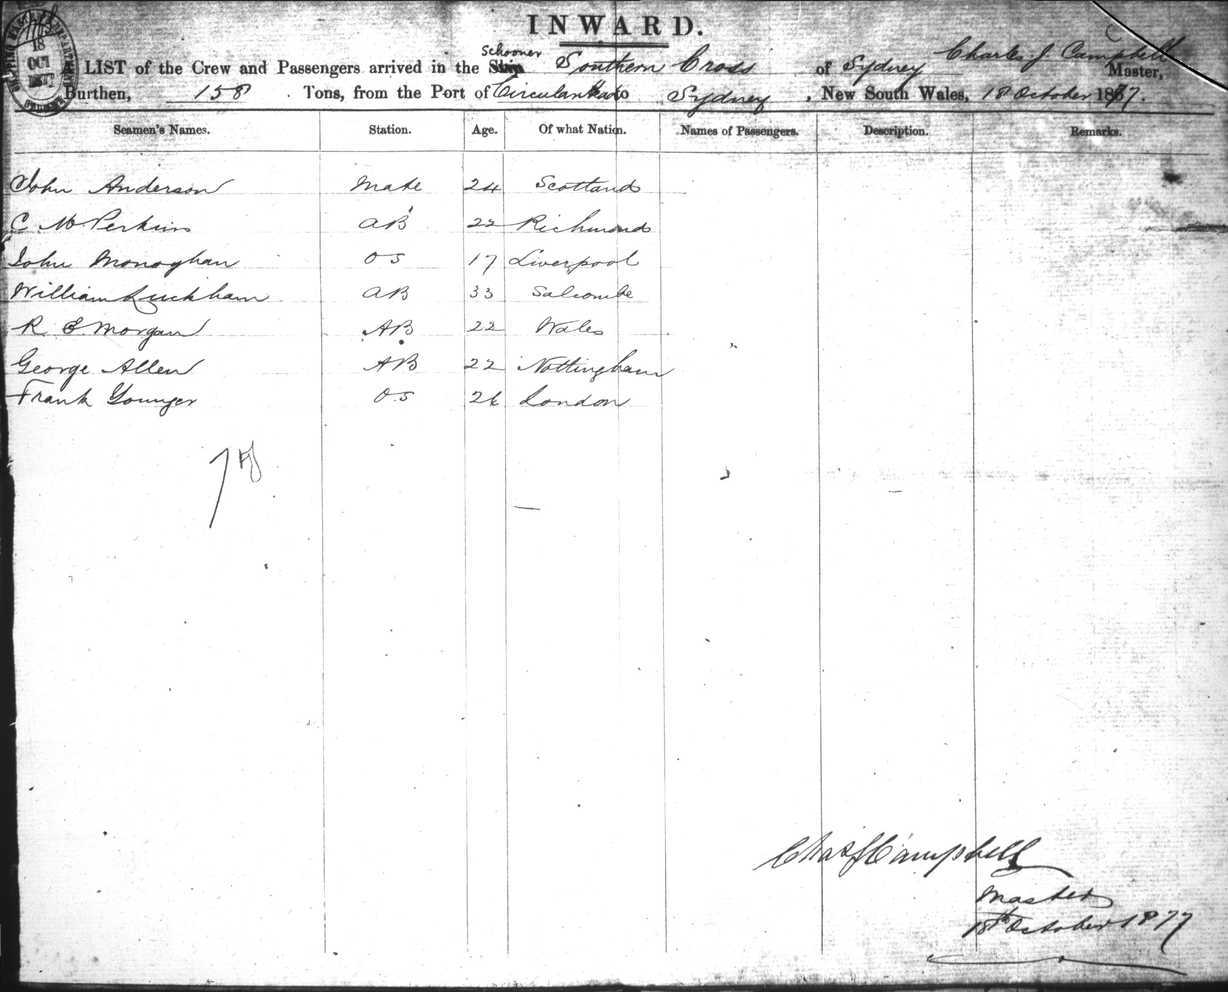 18
OCT
1877
INWARD.
Schooner
LIST of the Crew and Passengers arrived in the Ship Southern Cross of Sydney Charles J Campbell Master,
Burthen, 158 Tons, from the Port of Circular Head to Sydney, New South Wales, 18 October 1877.
Seamen's Names. Station. Age. Of what Nation. Names of Passengers. Description. Remarks.
John Anderson Mate 24 Scotland
C Perkins AB 22 Richmond
John Monoghan OS 17 Liverpool
William Luckham AB 33 Salcombe
R E Morgan AB 22 Wales
George Allen AB 22 Nottingham
Frank Younger OS 26 London
7
Chas J Campbell
Master
18th October 1877